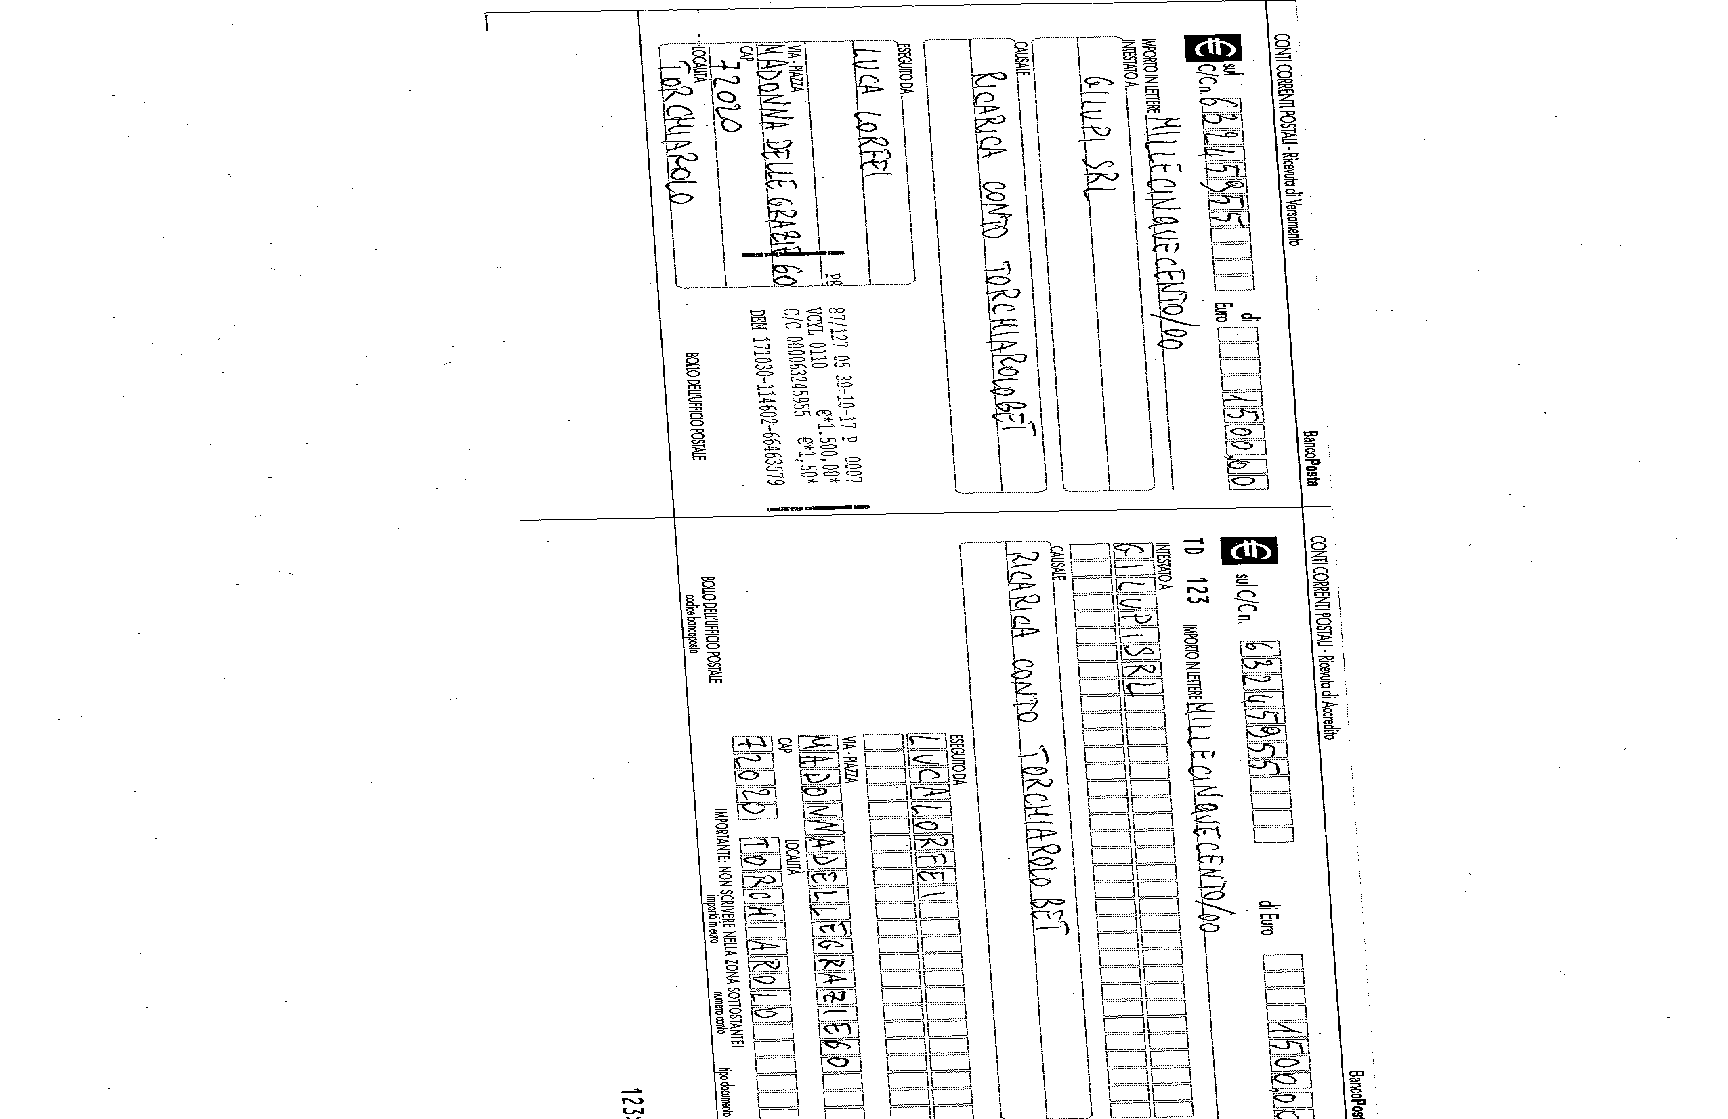 CONTI CORRENTI POSTALI - Ricevuta di Versamento
BancoPosta
€ sul C/C n. 63245955 di Euro 1500,00
IMPORTO IN LETTERE MILLECINQUECENTO/00
INTESTATO A
GILUPI SRL
CAUSALE
RICARICA CONTO TORCHIAROLO BET
ESEGUITO DA
LUCA LORFEI
VIA - PIAZZA
MADONNA DELLE GRAZIE 60
CAP
72020
LOCALITÀ
TORCHIAROLO
87/127 05 30-10-17 P 0007
VCYL 0110 €*1.500,00*
C/C 000063245955 €*1,50*
DEM 171030-114602-66463079
BOLLO DELL'UFFICIO POSTALE
CONTI CORRENTI POSTALI - Ricevuta di Accredito
BancoPos
€ sul C/C n. 63245955 di Euro 1500,0
TD 123 IMPORTO IN LETTERE MILLECINQUECENTO/00
INTESTATO A
GILUPI SRL
CAUSALE
RICARICA CONTO TORCHIAROLO BET
ESEGUITO DA
LUCA LORFEI
VIA - PIAZZA
MADONNA DELLE GRAZIE 60
CAP LOCALITÀ
72020 TORCHIAROLO
BOLLO DELL'UFFICIO POSTALE
codice bancoposta
IMPORTANTE: NON SCRIVERE NELLA ZONA SOTTOSTANTE!
importo in euro numero conto tipo documento
123